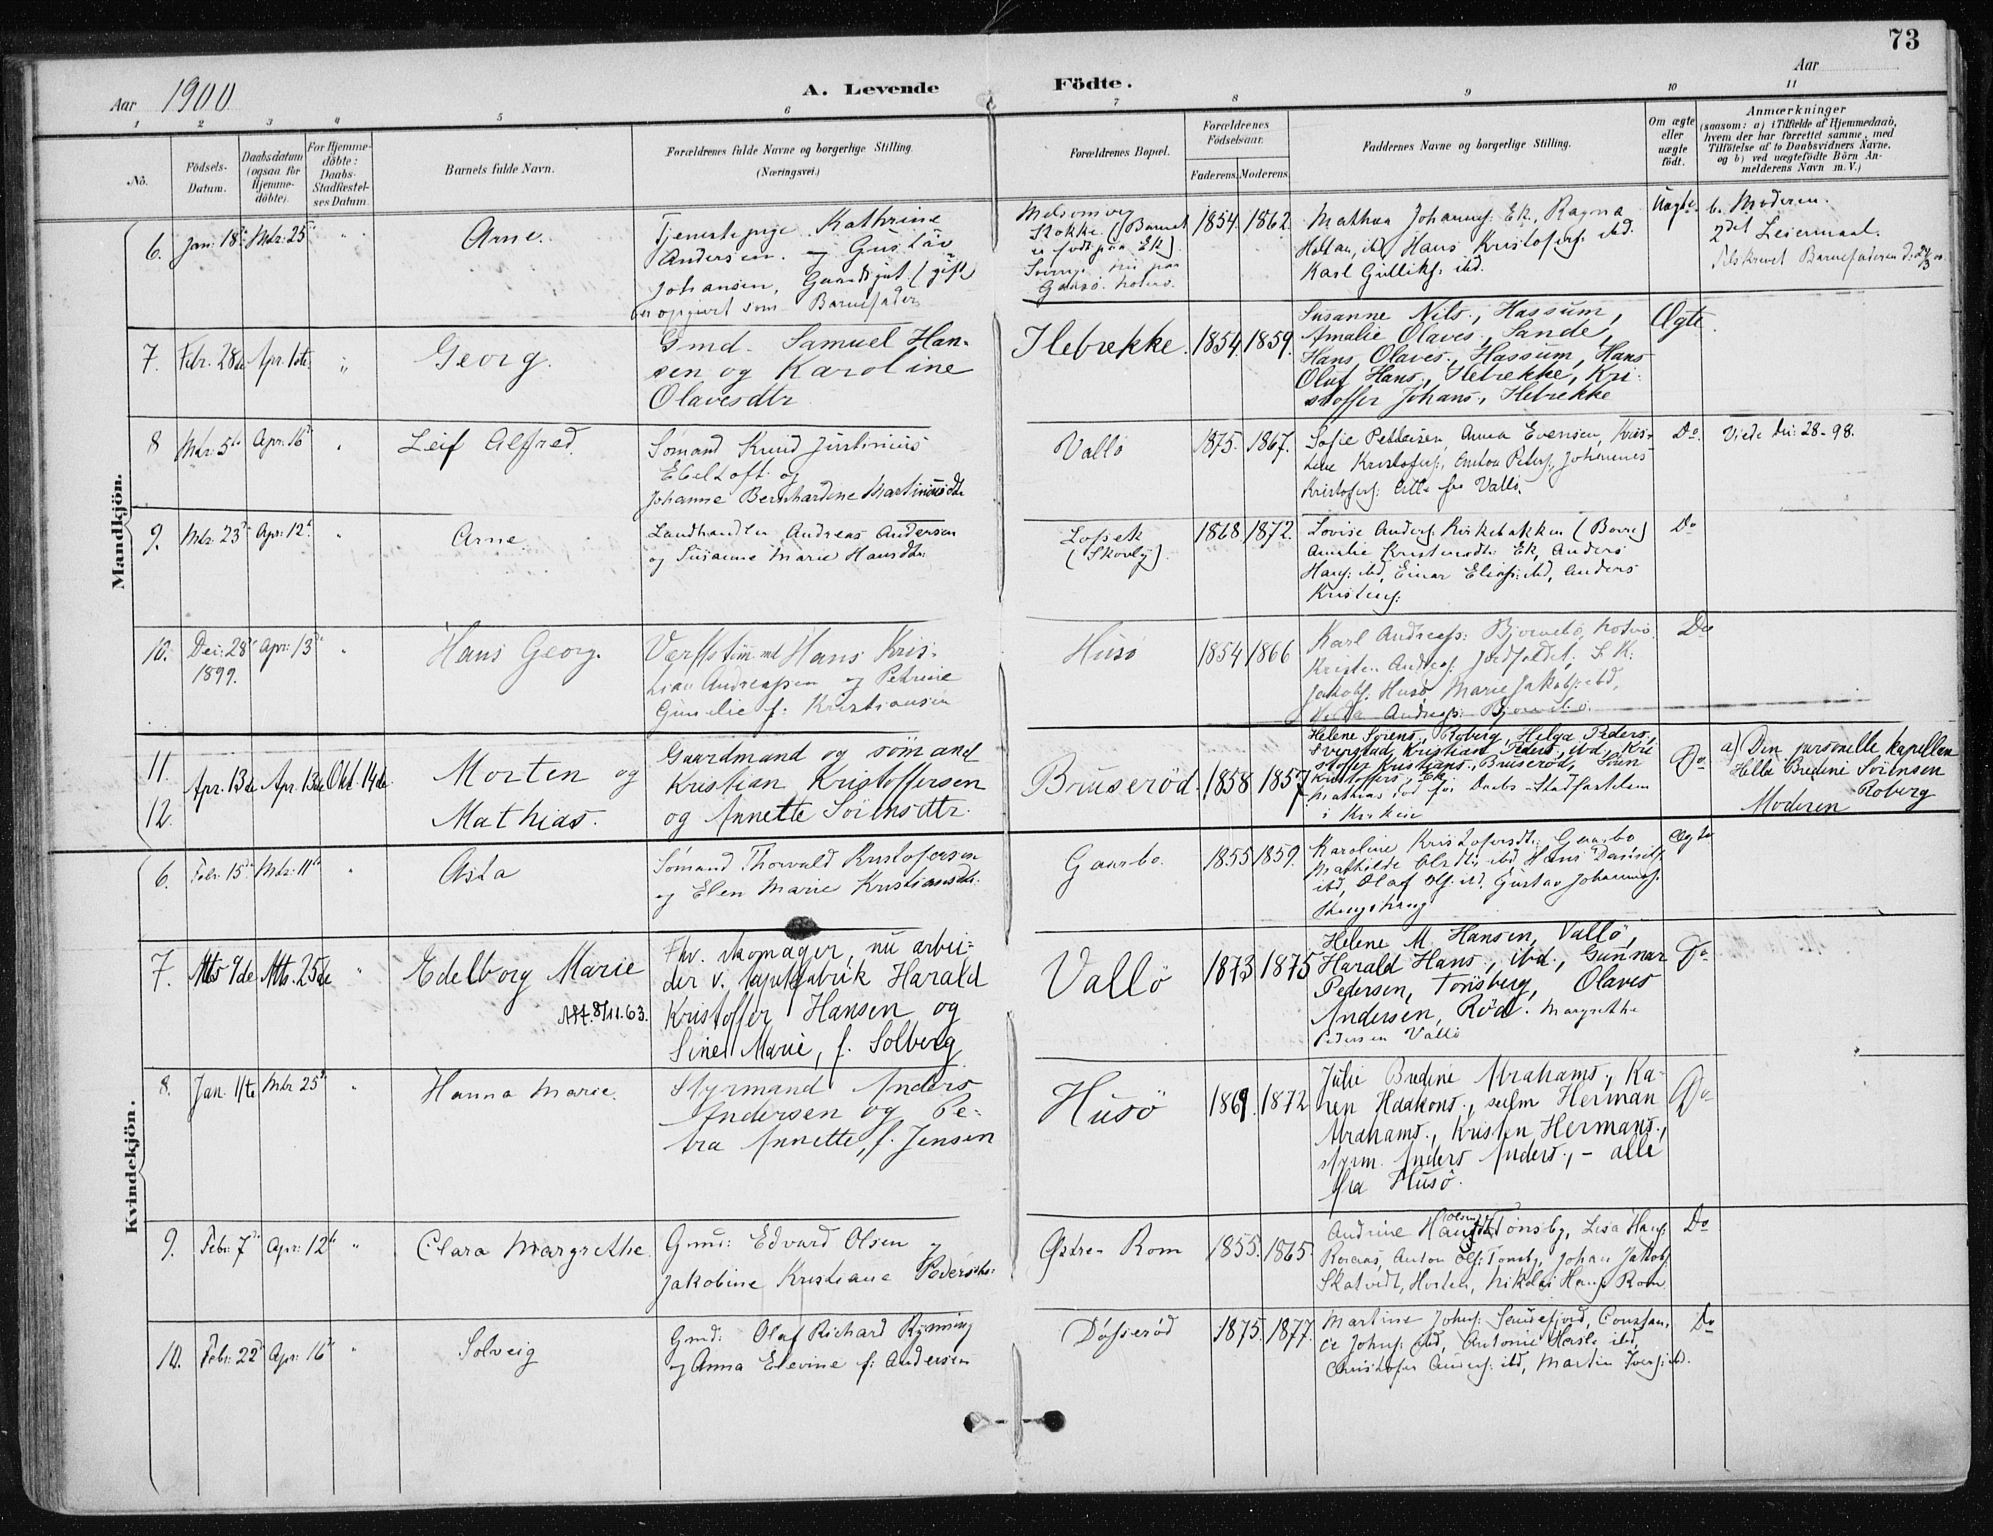 73
Aar 1900
A. Levende Födte.
Aar
1 2 3 4 5 6 7 8 9 10 11
No.
Födsels-Datum.
Daabsdatum (ogsaa for Hjemmedöbte).
For Hjemmedöbte: Daabs-Stadfæstelses Datum.
Barnets fulde Navn.
Forældrenes fulde Navne og borgerlige Stilling.
(Næringsvei.)
Forældrenes Bopæl.
Forældrenes Födselsaar.
Faderens. Moderens.
Faddernes Navne og borgerlige Stilling.
Om ægte eller uægte födt.
Anmærkninger
(saasom: a) i Tilfælde af Hjemmedaab, hvem der har forrettet samme, med Tilföielse af to Daabsvidners Navne, og b) ved uægtefödte Börn Anmelderens Navn m. V.)
Mandkjön.
6. Jan: 18de Mts: 25de " Arne.
Tjenestepige Kathrine
Andersen og Gustav
Johansen, Gaardsgut (gift)
er opgivet som Barnefader
Melsomvig
Stokke. (Barnet
er født paa Ek)
1854. 1862.
Mathea Johannesf: Ek, Ragna
ibd, Hans Kristofersf: ibd.
Karl Gulliksf: ibd.
Uægte
b. Moderen.
2det Leiermaal.
7. Febr. 28de Apr. 1ste " Georg.
Gmd. Samuel Han-
sen og Karoline
Olavesdtr
Ilebrekke. 1854 1859.
Susanne Nils., Hassum,
Amalie Olaves., Sande,
Hans Olaves., Hassum, Hans
Oluf Hans., Ilebrekke, Kri-
stoffer Johans., Ilebrekke
Ægte.
8 Mts: 5te Apr: 16de " Leif Alfred.
Sømand Knud Justinius
Ebeltoft og
Johanne Bernhardine Martiniusdtr
Vallø 1875. 1867.
Sofie Pettersen, Anna Evensen, Kris-
tine Kristofersf:, Anton Petersf, Johannes
Kristofersf: Alle fra Vallø.
Do.
Viede Dec: 28-98.
9. Mts: 23de Apr: 12te " Arne
Landhandler Andreas Andersen
og Susanne Marie Hansdtr
(Skovly) 1868 1872.
Lovise Andersf Kirkebakken (Borre)
Amalie Kristensdtr Ek, Anders
Hansf: ibd, Einar Eliasf: ibd, Anders
Kristensf:
Do
10. Dec: 28de Apr: 13de " Hans Georg.
1899.
Verftstømmd Hans Kris-
tian Andreassen og Petrine
Gunelie f: Kristiansen
Husø 1854 1866
Karl Andreasf: Bjørnebo, Nøtterø.
Kristen Andreasf:
Jakobf: Husø Marie Jakobf: ibd,
Do
11.
12. Apr. 13de Apr. 13de Okt. 14de
Morten og
Mathias.
Gaardmand og sømand
Kristian Kristoffersen
og Annette Sørensdtr.
Bruserød 1858 1857
Helene Sørens., Roberg, Helga Peders.,
Sverstad, Kristian Peders., ibd., Kri
stoffer Kristians., Bruserød, Søren
Kristoffers., Ek
Mathias død før Daabs-Stadfæstelsen
i Kirken
Do.
a) Den personelle Kapellan
Helle Bredine Sørensen
Roberg
Moderen
Kvindekjön.
6. Febr: 15de Mts: 11te " Asta
Sømand Thorvald Kristofersen
og Elen Marie Kristiansdtr.
Gaarbo. 1855 1859.
Karoline Kristofersdtr: Gaarbo
Mathilde Olsdtr ibd Hans
ibd, Olaf Olsf: ibd. Gustav Johannesf.
Ægte
7. Mts 9de Mts. 25de " Edelborg Marie
8/11.63.
Fhv. skomager, nu arbei-
der v. Tapetfabrik Harald
Kristoffer Hansen og
Sine Marie, f. Solberg
Vallö 1873 1875
Helene M. Hansen, Vallö,
Harald Hans., ibd., Gunnar
Pedersen, Tönsberg, Olaves
Andersen, Röd. Margrethe
Pedersen Vallø
Do
8. Jan. 11te Mts 25de " Hanna Marie.
Styrmand Anders
Andersen og Pe-
tra Annette, f. Jensen
Husö 1869 1872
Julie Bredine Abrahams., Ka-
ren Haakons., sølm Herman
Abrahams., Kristen Hermans.,
styrm. Anders Anders., - alle
fra Husö.
Do
9. Febr: 7de Apr: 12te " Clara Margrethe.
Gmd: Edvard Olsen og
Jakobine Kristiane Pedersdtr:
Østre Rom 1855. 1865.
Andrine Hansf Tønsbg, Lisa Hansf.
Anton Olsf: Tønsbg, Johan Jakobf.
Skatvedt, Horten, Nikolai Hansf Rom
Do
10. Febr: 22de Apr: 16de " Solveig
Gmd: Olaf Richard Rynning
og Anna Elevine f: Andersen
Døsserød 1875. 1877.
Martine Johnsf: Sandefjord, Constan-
ce Johnsf: ibd, Antonie Hasle ibd,
Christofer Andersf: ibd, Martin Iversf: ibd.
Do